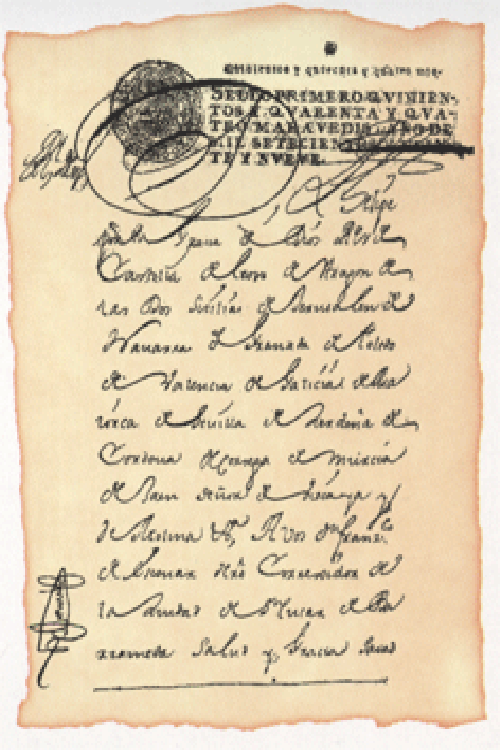 Quinientos y quarenta y quatro mrs.
SELLO PRIMERO, QVINIEN-
TOS Y QVARENTA Y QVA-
TRO MARAVEDIS, AÑO DE
MIL SETECIENTOS
TE Y NVEVE.
Felipe
por la Gracia de Dios Rey de
Castilla de Leon de Aragon de
las Dos Sicilias de Jerusalen de
Navarra de Granada de Toledo
de Valencia de Galicia de Ma
llorca de Sevilla de Zerdeña de
Cordova de Corzega de Murcia
de Jaen Señor de Vizcaya y
de Molina A Vos Dn Franco
de nro Correxidor de
la Ciudad de Sn Lucar de Ba
rrameda Salud y Gracia Saved